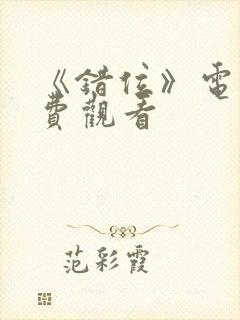 《錯位》電
費觀看
范彩霞